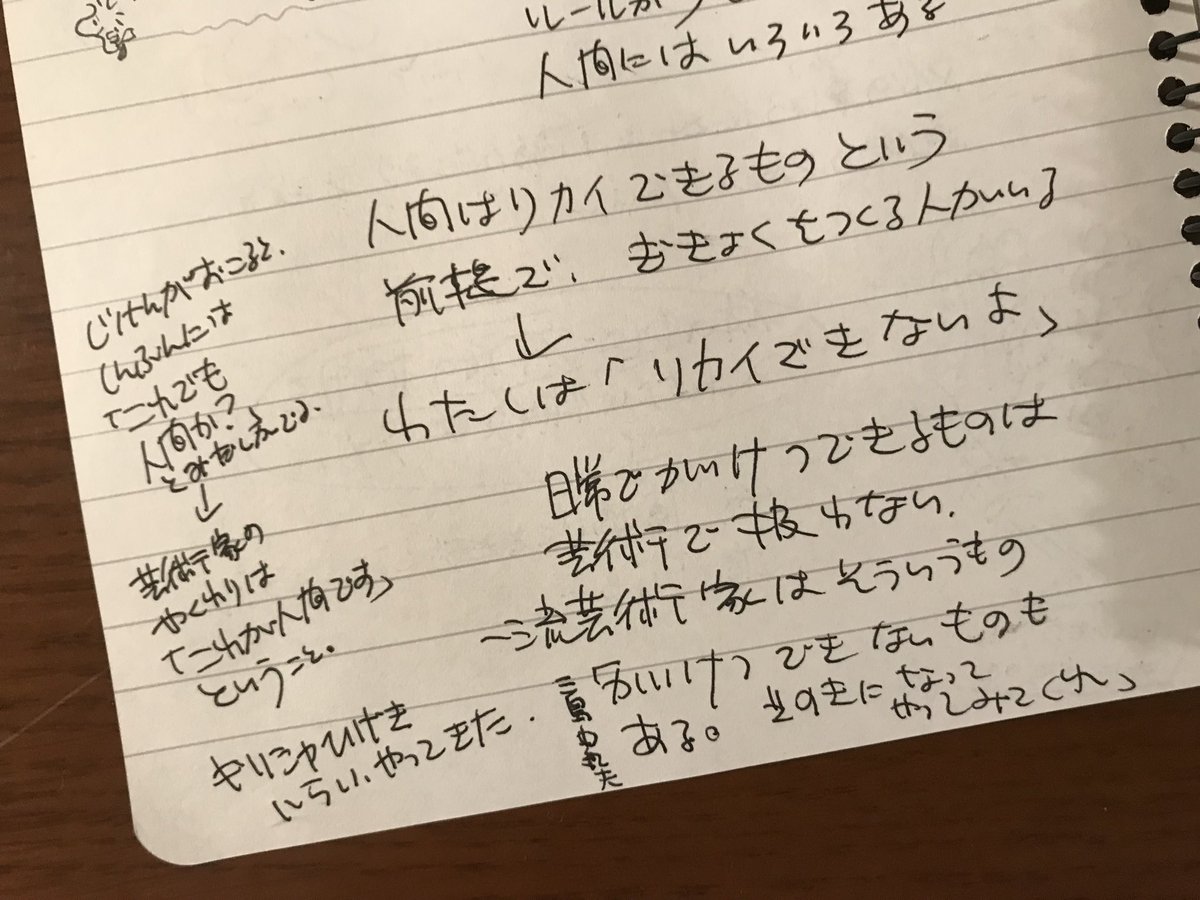 人間にはいろいろある
人間はリカイできるものという
前提で、ぎきょくをつくる人がいる
↓
わたしは「リカイできないよ」
日常でかいけつできるものは
芸術で扱わない.
一流芸術家はそういうもの
かいけつできないものも
ある。
その気になって
やってみてくれ」
じけんがおこると、
しんぶんには
「これでも
人間か?
と
↓
芸術家の
やくわりは
「これが人間です」
ということ。
ギリシャひげき
いらい、やってきた.